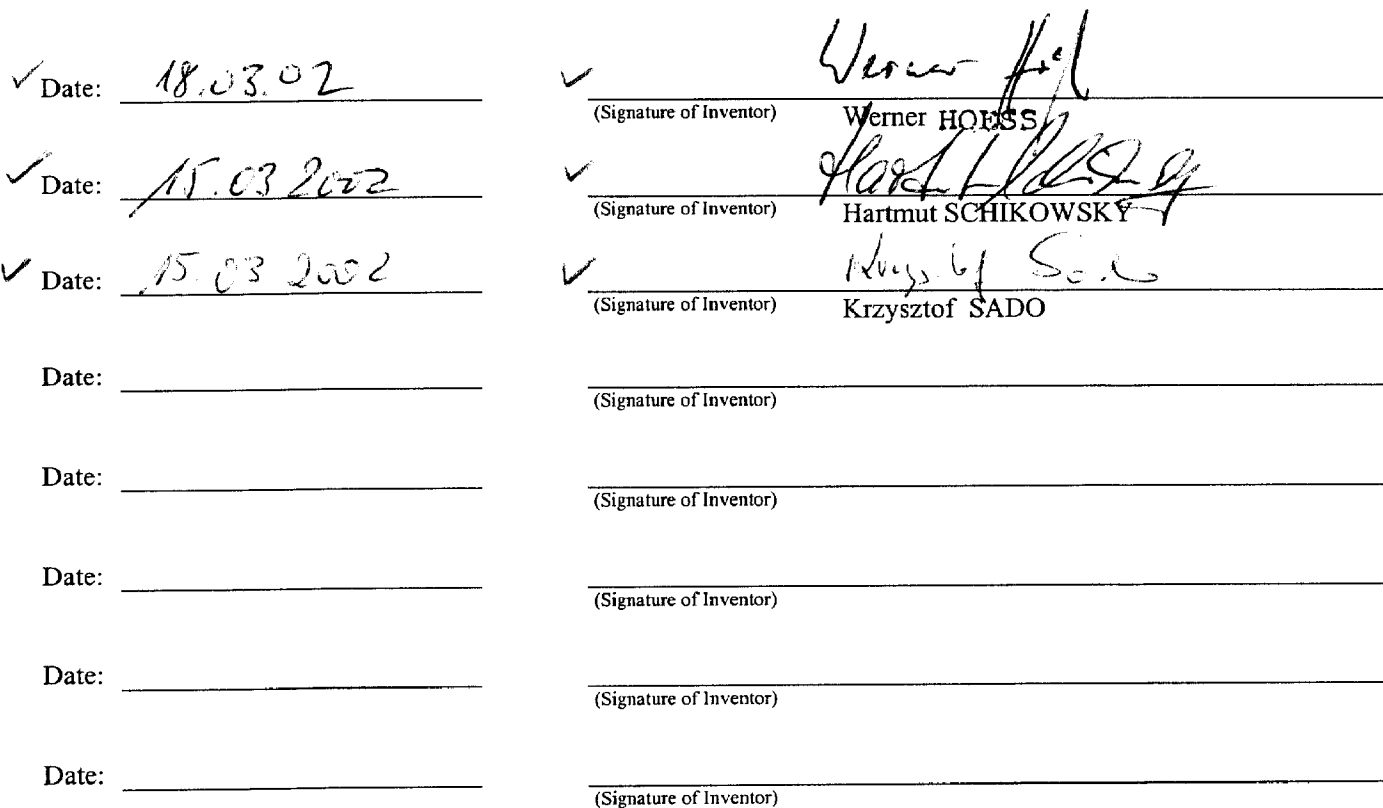 ✓ Date: 18.03.02 ✓ Werner
(Signature of Inventor) Werner HOESS
✓ Date: 15.03 2002 ✓
(Signature of Inventor) Hartmut SCHIKOWSKY
✓ Date: 15.03 2002 ✓ Krzysztof Sado
(Signature of Inventor) Krzysztof SADO
Date:
(Signature of Inventor)
Date:
(Signature of Inventor)
Date:
(Signature of Inventor)
Date:
(Signature of Inventor)
Date:
(Signature of Inventor)